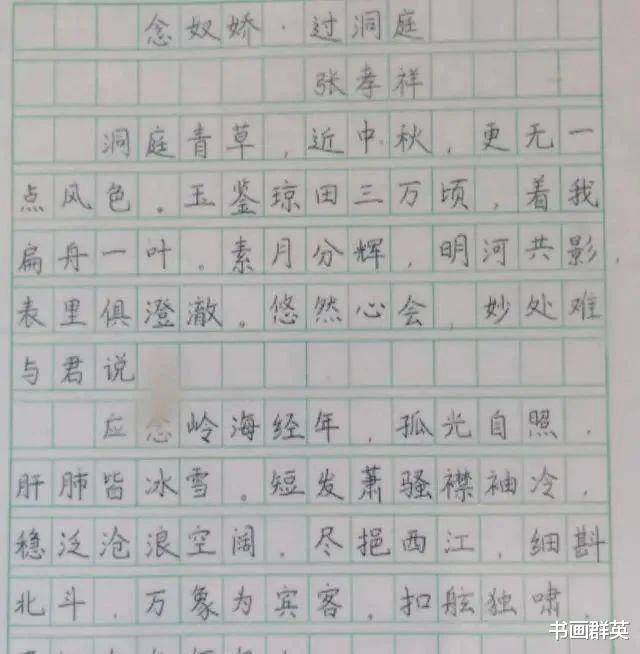 念奴娇·过洞庭
张孝祥
洞庭青草,近中秋,更无一
点风色。玉鉴琼田三万顷,着我
扁舟一叶。素月分辉,明河共影,
表里俱澄澈。悠然心会,妙处难
与君说
应念岭海经年,孤光自照,
肝肺皆冰雪。短发萧骚襟袖冷,
稳泛沧浪空阔。尽挹西江,细斟
北斗,万象为宾客,扣舷独啸,
书画群英